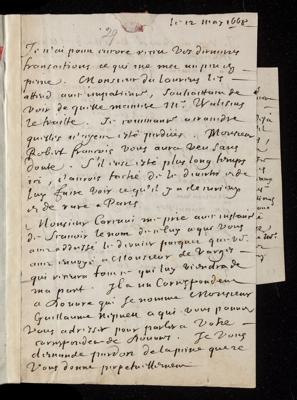 le 12 may 1668
Je n'ai point encore receu vos dernieres
transactions ce qui me met un peu en
peine. Monsieur de Laurens les
attend avec impatience, souhaittant de
voir de quelle maniere Mr. Wallisius
le traitte. Je commence a craindre
qu'elles n'ayent esté perdües. Monsieur
Robert francois vous aura veu sans
doute. S'il eut esté plus long temps
ici, j'aurois taché de le divertir et de
luy faire voir ce qu'il y a de curieux
et de rare a Paris
Monsieur me prie avec instance
de sçavoir le nom de celuy a qui vous
avez addressé le dernier pacquet que vous
avez envoyé a Monsieur de
qui recevra tout ce qui luy viendra de
ma part. Il a un Correspondent
a Douvre qui se nomme Monsieur
Guillaume a qui vous pouvez
vous adresser pour parler a votre
correspondent de Douvre. Je vous
demande pardon de la peine que je
vous donne perpetuellement